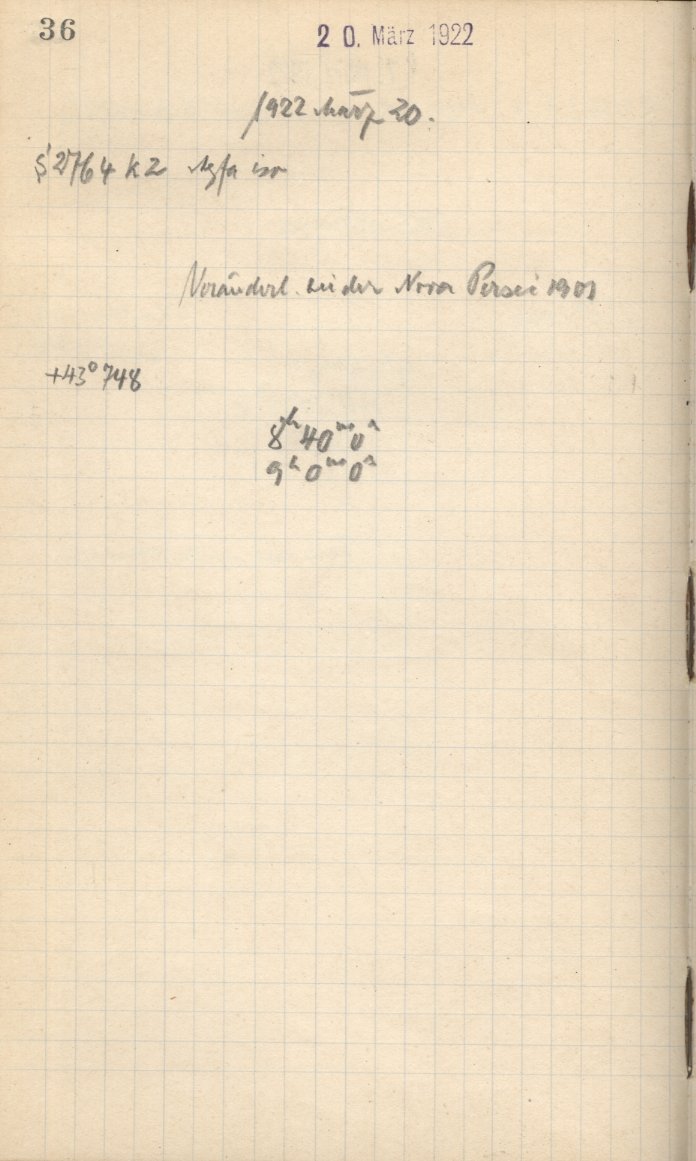 36
20. März 1922
1922 März 20.
S 2764 k2 Agfa iso
Veränderl. bei der Nova Persei 1901
+43° 748
8ʰ 40ᵐ 0ˢ
9ʰ 0ᵐ 0ˢ